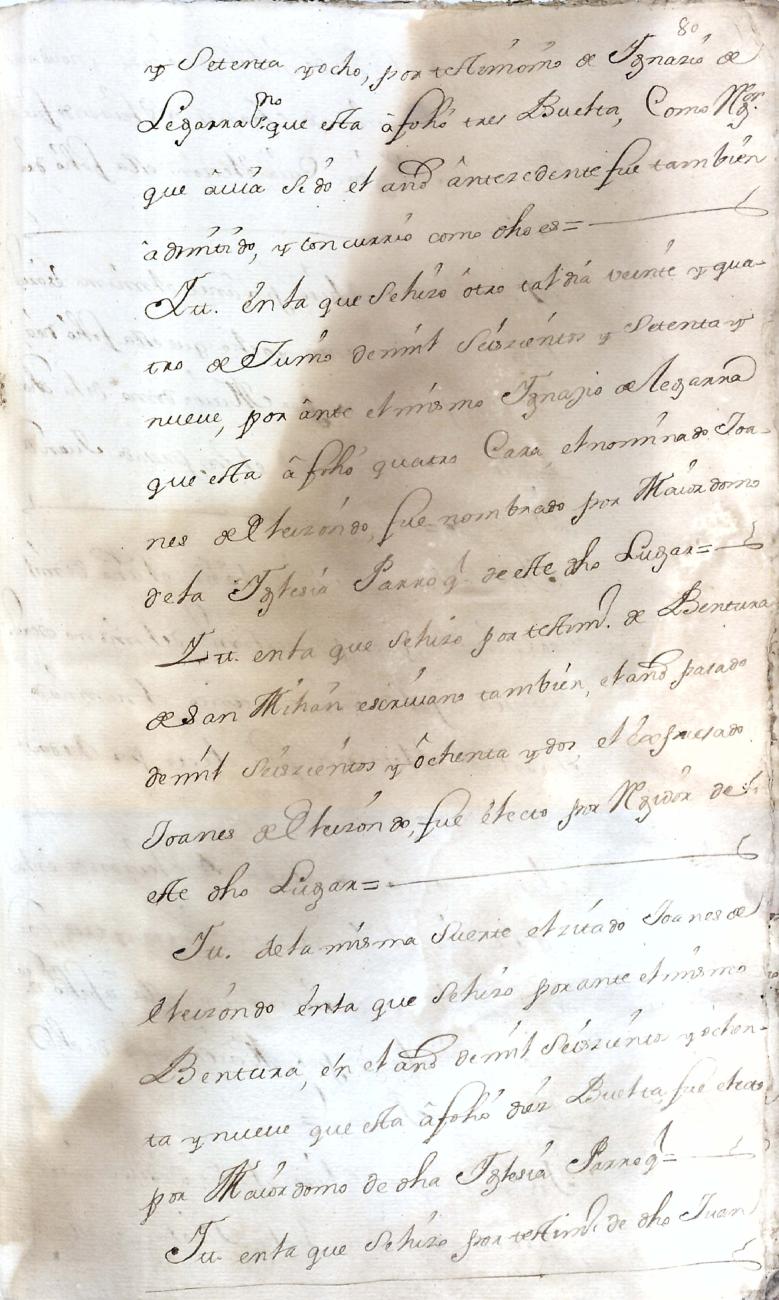 80
y Setenta y ocho, por testimonio de Ygnazio de
Legarra es.no que esta â folio tres Buelta, Como Rg.or
que âuia sido el año ântezedente fue tambien
âdmitido, y concurrio como dho es=
Yt. en la que se hizo ôtro tal dia veinte y qua-
tro de Junio de mil seiszientos y setenta y
nueve, por ânte el mismo Ygnazio de legarra
que esta â folio quatro Cara, el nominado Joa-
nes de Eleizondo, fue nombrado por Maiordomo
de la Yglesia Parroq.l de este dho Lugar=
Yt. en la que se hizo por testim.o de Bentura
de San Mihân escriuano tambien, el año pasado
de mil seiszientos y ôchenta y dos, el expresado
Joanes de Eleizondo, fue êlecto por Rexidor de
este dho Lugar=
Yt. de la misma suerte el zitado Joanes de
Eleizondo ênla que se hizo por ante el mismo
Bentura, ên el año de mil seiszientos y ôchen-
ta y nueve que esta â folio diez Buelta, fue electo
por Maiordomo de dha Yglesia Parroq.l=
Yt. en la que se hizo por testim.o de dho Juan